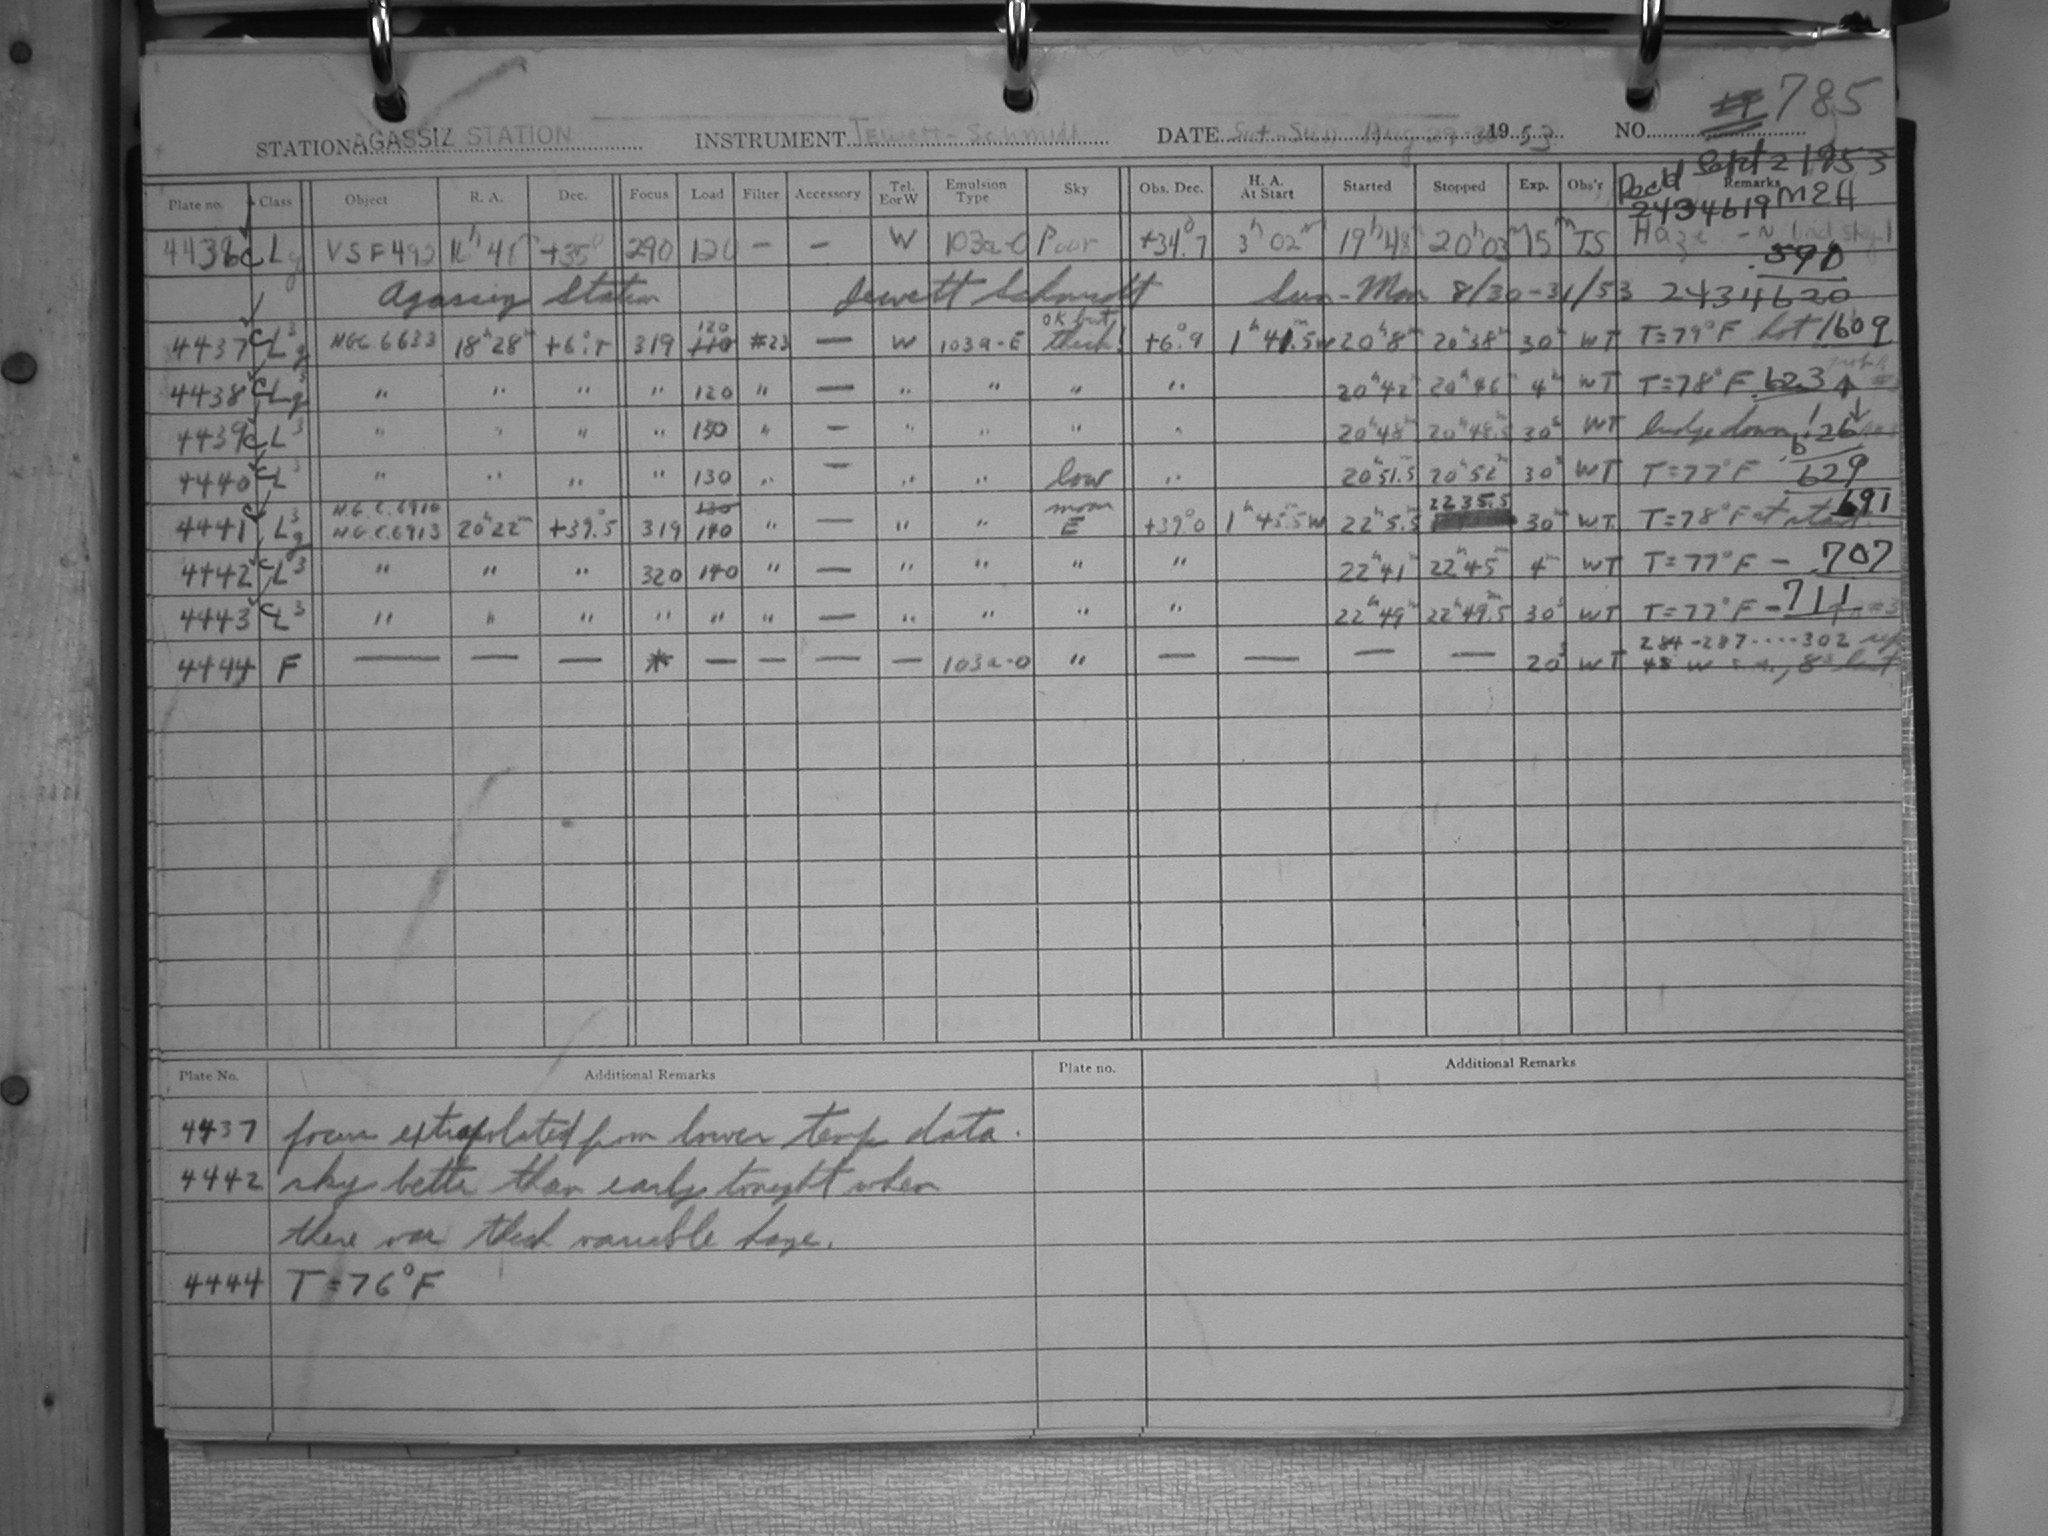 # 785
STATION AGASSIZ STATION INSTRUMENT Jewett-Schmidt DATE Sat-Sun Aug 29-30 1953 NO.
Rec'd Sept 2 1953
Plate no. Class Object R. A. Dec. Focus Load Filter Accessory Tel. E or W Emulsion Type Sky Obs. Dec. H. A. At Start Started Stopped Exp. Obs'r Remarks MEH
2434619
4436 c L VSF492 16h 41 +35° 290 120 — — W 103a-O Poor +34°.7 3h 02m 19h 48m 20h 03m 15m TS Haze
.590
Agassiz Station Jewett Schmidt Sun-Mon 8/30-31/53 2434620
4437 c L3g NGC. 6633 18h 28m +6°.5 319 120 110 #23 — W 103a-E OK but thick! +6°.9 1h 41.5m W 20h 8m 20h 38m 30m WT T=79°F hot! .609
4438 c L3g " " " " 120 " — " " " " 20h 42m 20h 46m 4m WT T=78°F .623 ↑
4439 c L3 " " " " 130 " — " " " " 20h 48m 20h 48.5m 30s WT .626 ↓
4440 c L3 " " " " 130 " — " " low " 20 51.5 20h 52m 30s WT T=77°F .629
4441 c L3g N.G.C. 6910 N.G.C. 6913 20h 22m +39°.5 319 130 140 " — " " moon E +39°.0 1h 45.5m W 22h 5.5 22 35.5 30m WT T=78°F at start .691
4442 c L3 " " " 320 140 " — " " " " 22h 41m 22h 45m 4m WT T=77°F — .707
4443 c L3 " " " " " " — " " " " 22h 49m 22h 49.5m 30s WT T=77°F — .711
4444 F — — — * — — — — 103a-O " — — — — 20s WT 284-287....302
48 W 8s last
Plate No. Additional Remarks Plate no. Additional Remarks
4437 focus extrapolated from lower temp data.
4442 sky better than early tonight when
there was thick variable haze.
4444 T=76°F